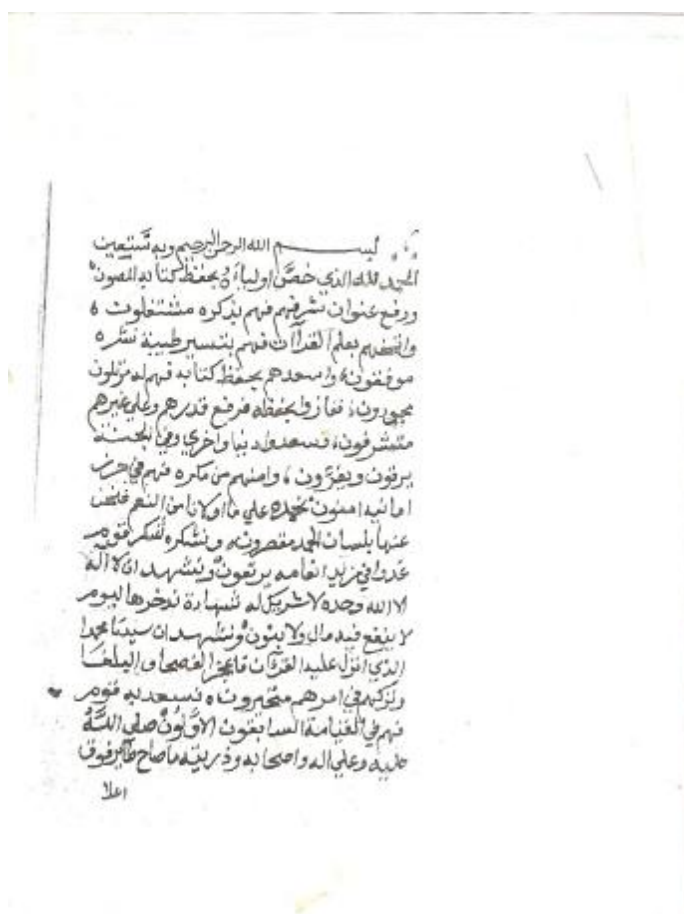 بسم الله الرحمن الرحيم وبه نستعين
الحمد لله الذي خصَّ اولياءه بحفظ كتابه المصون
ورفع عنوان شرفهم فهم بذكره مشتغلون ه
بعلم القرآن فهم بتيسير طيبة نشره
موفقون واسعدهم بحفظ كتابه فهم له مرتلون
مجودون ففازوا بحفظه فرفع قدرهم وعلي غيرهم
متشرفون فسعدوا دنيا واخري وفي الجنة
يرقون ويقرؤن وامنهم من مكره فهم في حرز
امانيه امنون نحمده علي ما اولانا من النعم فنحن
عنها بلسان الحمد مقصرون ونشكره شكر قوم
غدوا في مزيد انعامه يرتعون ونشهد ان لا اله
الا الله وحده لا شريك له شهادة ندخرها ليوم
لا ينفع فيه مال ولا بنون ونشهد ان سيدنا محمدا
الذي انزل عليه القرآن فاعجز الفصحا و البلغا
وتركهم في امرهم متحيرون ه فسعد به قوم
فهم في القيامة السابقون الاوَّلونُ صلي اللهُ
عليه وعلي اله واصحابه وذريته ما صاح طاير فوق
اعلا